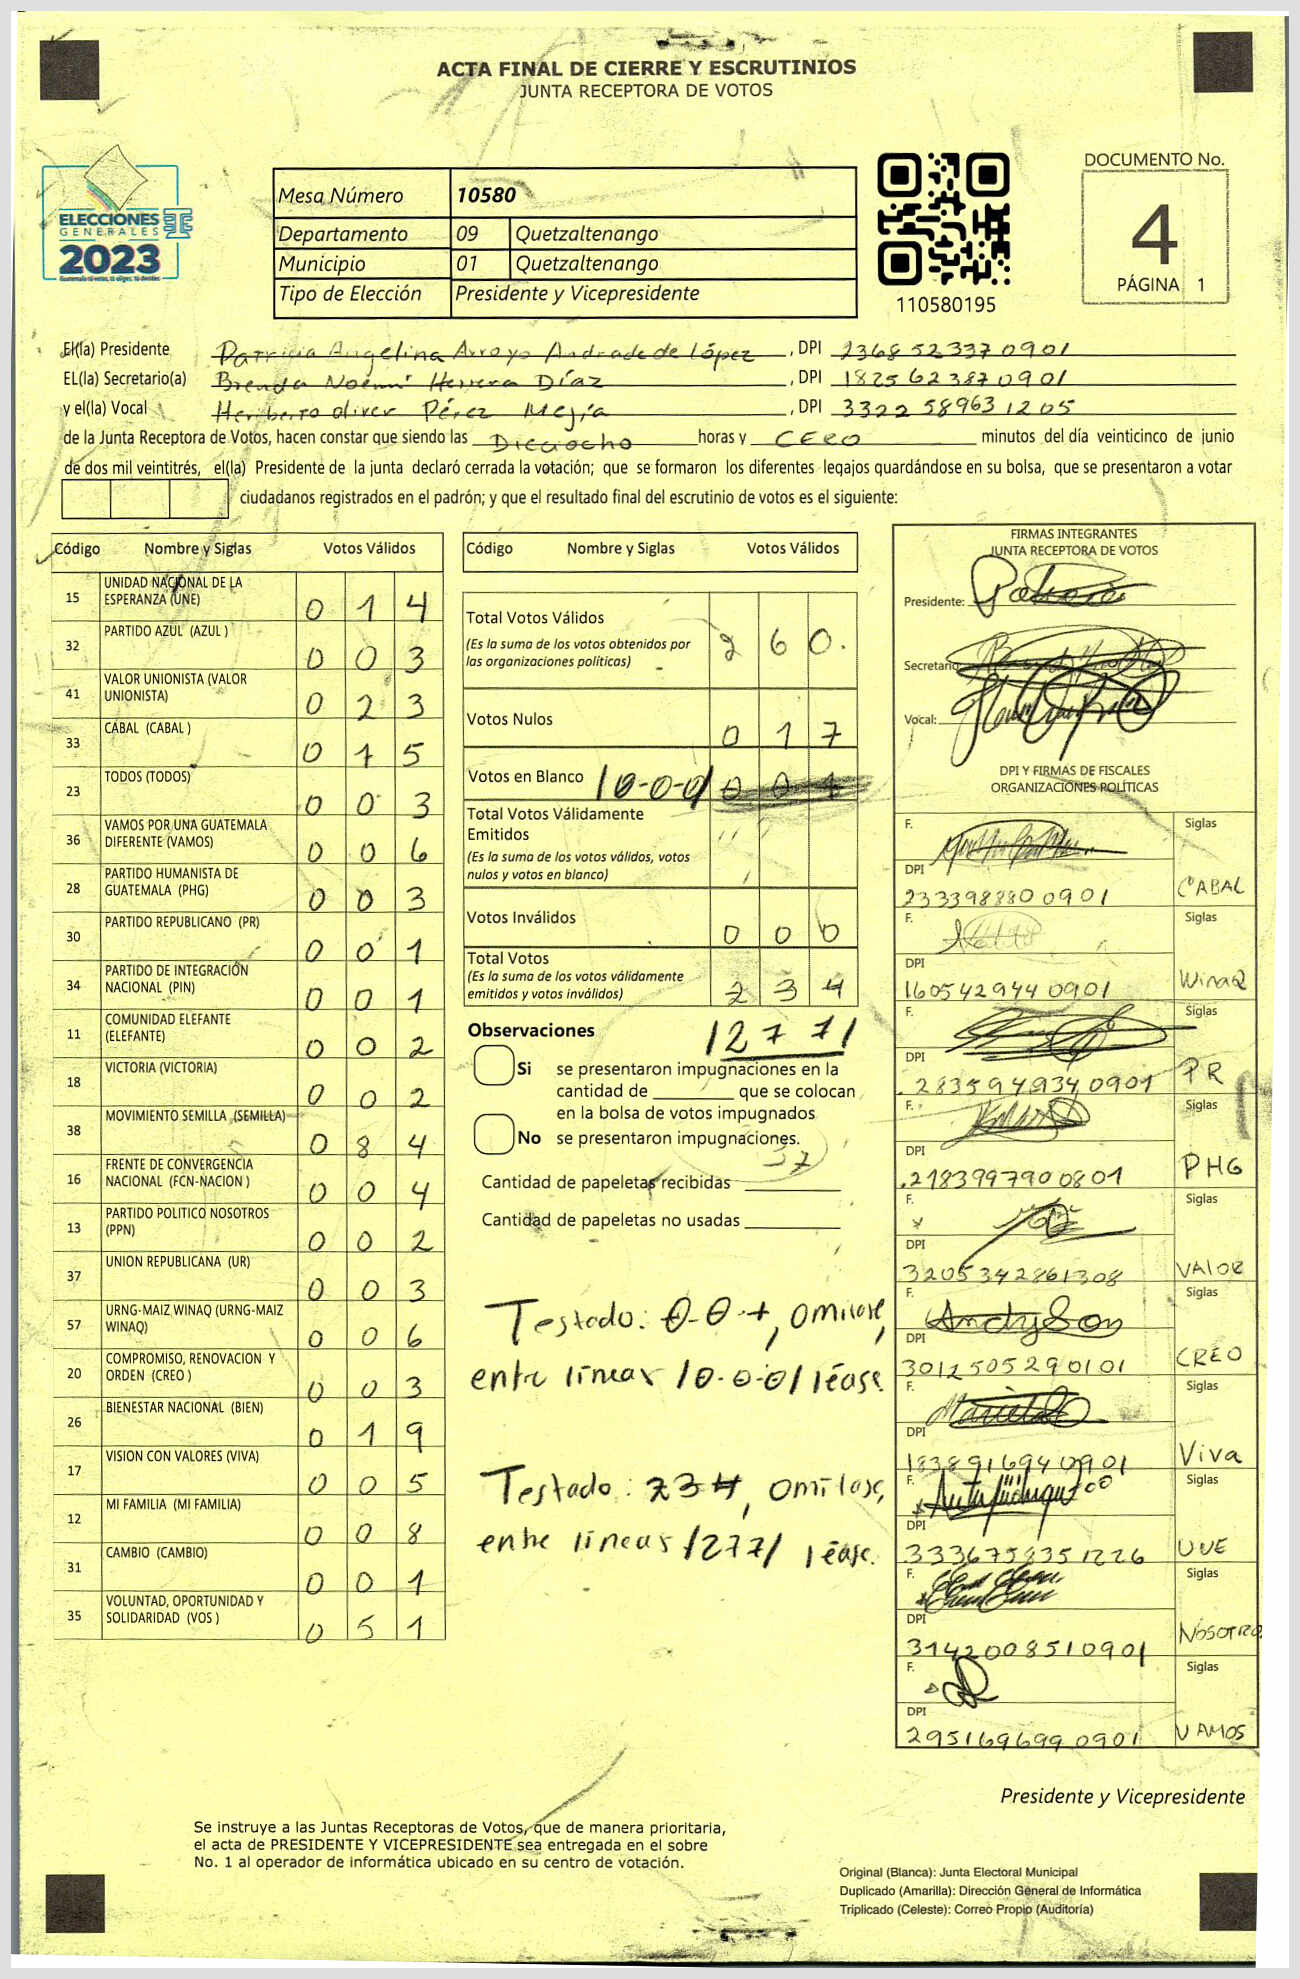 ACTA FINAL DE CIERRE Y ESCRUTINIOS
JUNTA RECEPTORA DE VOTOS
ELECCIONES
GENERALES
2023
Mesa Número 10580
Departamento 09 Quetzaltenango
Municipio 01 Quetzaltenango
Tipo de Elección Presidente y Vicepresidente
110580195
DOCUMENTO No.
4
PÁGINA 1
El(la) Presidente Patricia Angelina Arroyo Andrade de López, DPI 2368523370901
EL(la) Secretario(a) Brenda Noemí Herrera Díaz, DPI 1825623870901
y el(la) Vocal Heriberto Oliver Pérez Mejía, DPI 3322589631205
de la Junta Receptora de Votos, hacen constar que siendo las Dieciocho horas y CERO minutos del día veinticinco de junio
de dos mil veintitrés, el(la) Presidente de la junta declaró cerrada la votación; que se formaron los diferentes legajos quardándose en su bolsa, que se presentaron a votar
ciudadanos registrados en el padrón; y que el resultado final del escrutinio de votos es el siguiente:
Código Nombre y Siglas Votos Válidos
15 UNIDAD NACIONAL DE LA ESPERANZA (UNE) 0 1 4
32 PARTIDO AZUL (AZUL ) 0 0 3
41 VALOR UNIONISTA (VALOR UNIONISTA) 0 2 3
33 CABAL (CABAL ) 0 1 5
23 TODOS (TODOS) 0 0 3
36 VAMOS POR UNA GUATEMALA DIFERENTE (VAMOS) 0 0 6
28 PARTIDO HUMANISTA DE GUATEMALA (PHG) 0 0 3
30 PARTIDO REPUBLICANO (PR) 0 0 1
34 PARTIDO DE INTEGRACIÓN NACIONAL (PIN) 0 0 1
11 COMUNIDAD ELEFANTE (ELEFANTE) 0 0 2
18 VICTORIA (VICTORIA) 0 0 2
38 MOVIMIENTO SEMILLA (SEMILLA) 0 8 4
16 FRENTE DE CONVERGENCIA NACIONAL (FCN-NACION ) 0 0 4
13 PARTIDO POLITICO NOSOTROS (PPN) 0 0 2
37 UNION REPUBLICANA (UR) 0 0 3
57 URNG-MAIZ WINAQ (URNG-MAIZ WINAQ) 0 0 6
20 COMPROMISO, RENOVACION Y ORDEN (CREO ) 0 0 3
26 BIENESTAR NACIONAL (BIEN) 0 1 9
17 VISION CON VALORES (VIVA) 0 0 5
12 MI FAMILIA (MI FAMILIA) 0 0 8
31 CAMBIO (CAMBIO) 0 0 1
35 VOLUNTAD, OPORTUNIDAD Y SOLIDARIDAD (VOS ) 0 5 1
Código Nombre y Siglas Votos Válidos
Total Votos Válidos 2 6 0.
(Es la suma de los votos obtenidos por
las organizaciones políticas)
Votos Nulos 0 1 7
Votos en Blanco /0-0-0/ 0 0 1
Total Votos Válidamente
Emitidos
(Es la suma de los votos válidos, votos
nulos y votos en blanco)
Votos Inválidos 0 0 0
Total Votos 2 3 4
(Es la suma de los votos válidamente
emitidos y votos inválidos)
/277/
Observaciones
Si se presentaron impugnaciones en la
cantidad de ____ que se colocan
en la bolsa de votos impugnados
No se presentaron impugnaciones.
Cantidad de papeletas recibidas
Cantidad de papeletas no usadas
Testado: 0-0-1, omitase,
entre líneas /0-0-0/ léase
Testado: 234, omitase,
entre líneas /277/ léase.
FIRMAS INTEGRANTES
JUNTA RECEPTORA DE VOTOS
Presidente:
Secretario:
Vocal:
DPI Y FIRMAS DE FISCALES
ORGANIZACIONES POLÍTICAS
F. Siglas
DPI 2333988800901 CABAL
F. Siglas
DPI 1605429440901 WinaQ
F. Siglas
DPI 2835949340901 PR
F. Siglas
DPI 2183997900801 PHG
F. Siglas
DPI 3205342861308 VALOR
F. AndySon Siglas
DPI 3012505290101 CREO
F. Siglas
DPI 1838916940901 Viva
F. Siglas
DPI 3336758351226 UNE
F. Siglas
DPI 3142008510901 NOSOTRO
F. Siglas
DPI 2951696990901 VAMOS
Presidente y Vicepresidente
Se instruye a las Juntas Receptoras de Votos, que de manera prioritaria,
el acta de PRESIDENTE Y VICEPRESIDENTE sea entregada en el sobre
No. 1 al operador de informática ubicado en su centro de votación.
Original (Blanca): Junta Electoral Municipal
Duplicado (Amarilla): Dirección General de Informática
Triplicado (Celeste): Correo Propio (Auditoría)